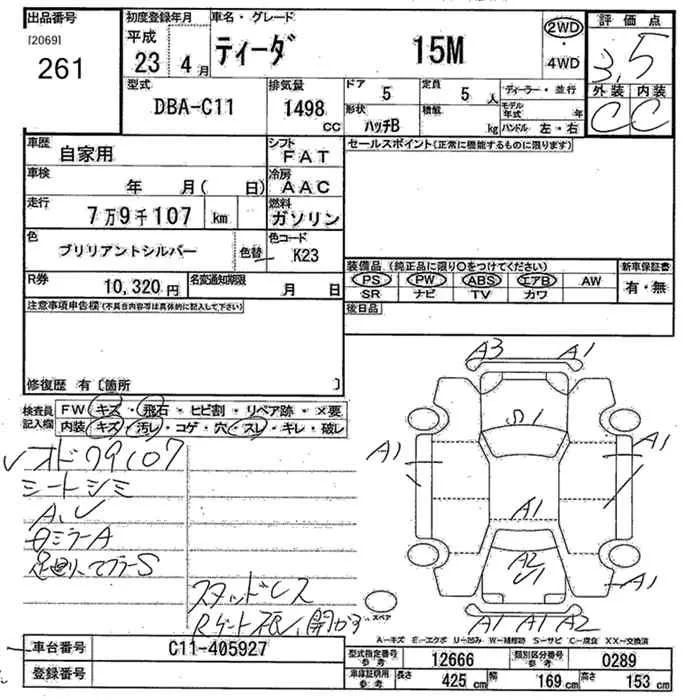 出品番号
[2069]
261
初度登録年月
平成
23 4 月
車名・グレード
ティーダ 15M
2WD
・
4WD
評価点
3,5
外装 内装
C C
型式
DBA-C11
排気量
1498
CC
ドア
5
定員
5 人
ディーラー・並行
形状
ハッチB
積載
kg
モデル年式 年
ハンドル 左・右
車歴
自家用
シフト
FAT
セールスポイント(正常に機能するものに限ります)
車検
年 月( 日)
冷房
AAC
走行
7万9千107 km
燃料
ガソリン
色
ブリリアントシルバー
色替
色コード
K23
R券
10,320 円
名変通知期限
月 日
装備品 (純正品に限り○をつけてください)
PS PW ABS エアB AW
SR ナビ TV カワ
新車保証書
有・無
注意事項申告欄(不具合内容等は具体的に記入して下さい)
後日品
修復歴 有〔箇所 〕
検査員
記入欄
FW キズ・飛石・ヒビ割・リペア跡・×要
内装 キズ・汚レ・コゲ・穴・スレ・キレ・破レ
オド79107
シートシミ
A、U
ミラーA
足廻リマフラーS
スタッドレス
Rゲート
A3 A1
A1
A1
A1
A2
U1
A1
A1 A1 A2
スペア
A-キズ E-エクボ U-凹み W-補修跡 S-サビ C-腐食 XX-交換済
車台番号
C11-405927
登録番号
型式指定番号
参考
12666
類別区分番号
参考
0289
車庫証明用
参考
長さ
425 cm
幅
169 cm
高さ
153 cm